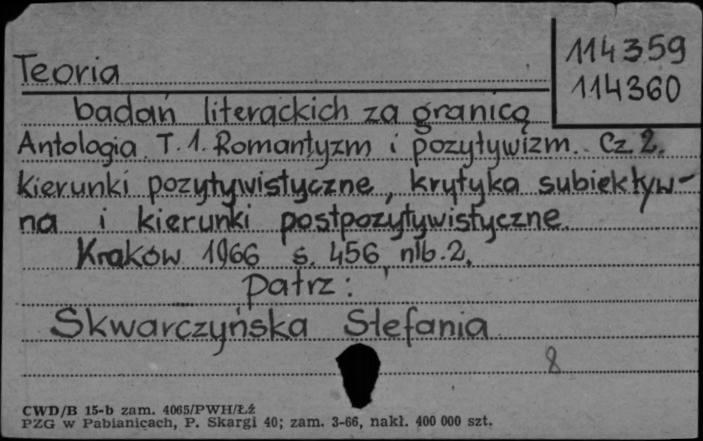 114359
114360
Teoria
badań literackich za granicą
Antologia. T.1. Romantyzm i pozytywizm. Cz 2.
Kierunki pozytywistyczne, krytyka subiektyw-
na i kierunki postpozytywistyczne.
Kraków 1966 s. 456 nlb. 2.
patrz:
Skwarczyńska Stefania
8
CWD/B 15-b zam. 4065/PWH/Łź
PZG w Pabianicach, P. Skargi 40; zam. 3-66, nakł. 400 000 szt.